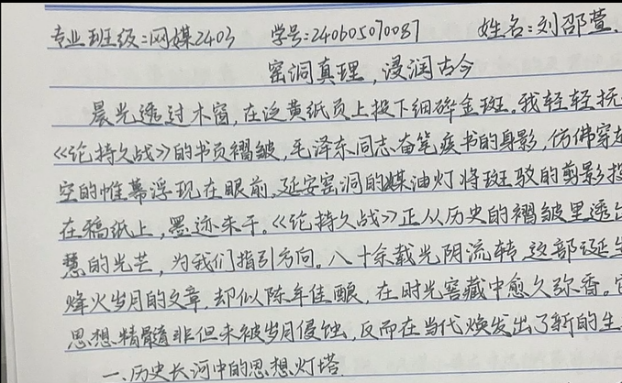 专业班级:网媒2403 学号:240605070087 姓名:刘邵萱.
窑洞真理,浸润古今
晨光透过木窗,在泛黄纸页上投下细碎金斑。我轻轻抚
《论持久战》的书页褶皱,毛泽东同志奋笔疾书的身影,仿佛穿越
空的帷幕浮现在眼前,延安窑洞的煤油灯将斑驳的剪影投
在稿纸上,墨迹未干。《论持久战》正从历史的褶皱里透出
慧的光芒,为我们指引方向。八十余载光阴流转,这部诞生
烽火岁月的文章,却似陈年佳酿,在时光窖藏中愈久弥香。它
思想精髓非但未被岁月侵蚀,反而在当代焕发出了新的生
一、历史长河中的思想灯塔